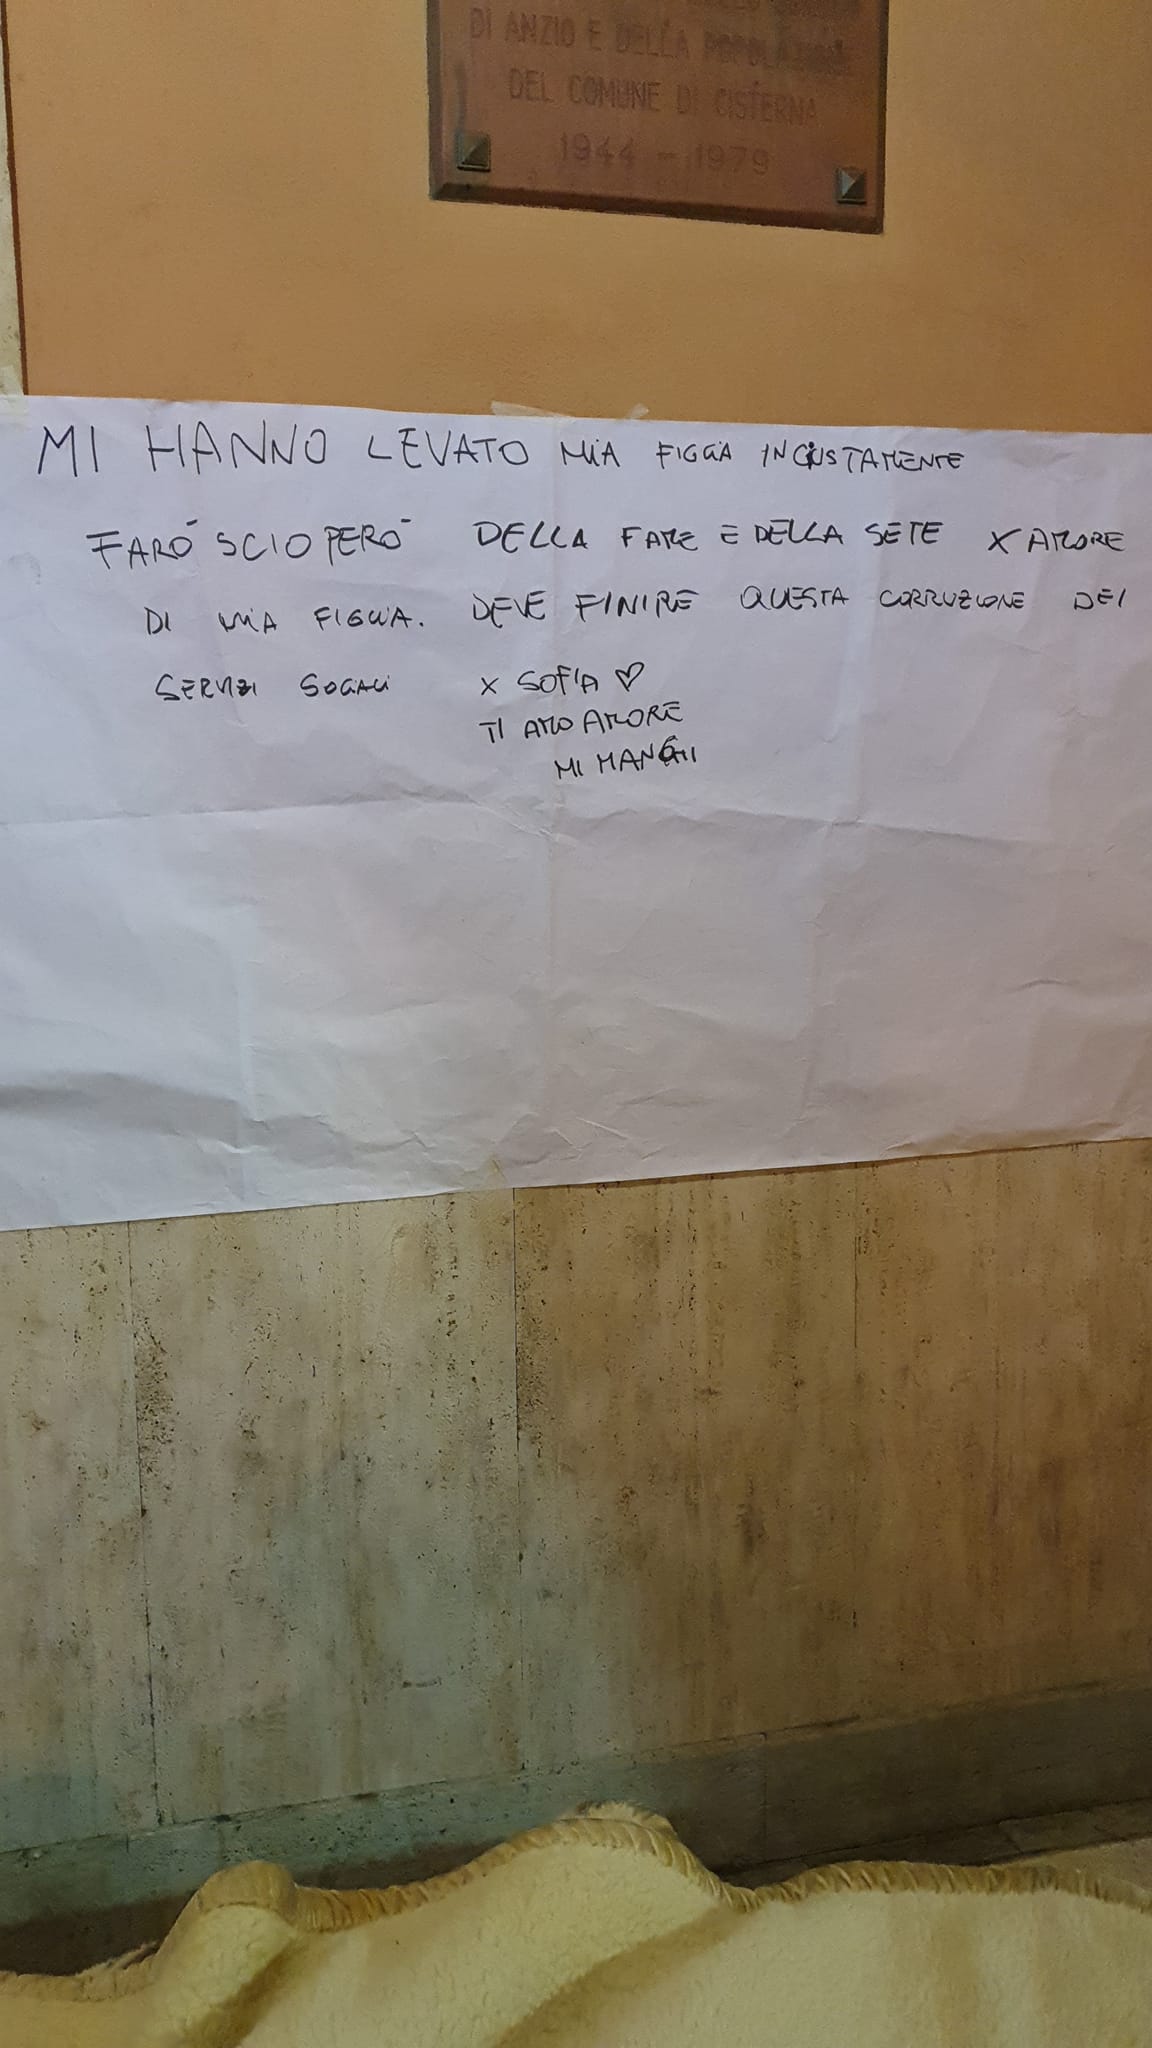 DI ANZIO E DELLA POPOLAZIONE
DEL COMUNE DI CISTERNA
1944 - 1979
MI HANNO LEVATO MIA FIGLIA INGIUSTAMENTE
FARÓ SCIOPERÓ DELLA FAME E DELLA SETE X AMORE
DI MIA FIGLIA. DEVE FINIRE QUESTA CORRUZIONE DEI
SERVIZI SOCIALI X SOFIA ♡
TI AMO AMORE
MI MANCHI